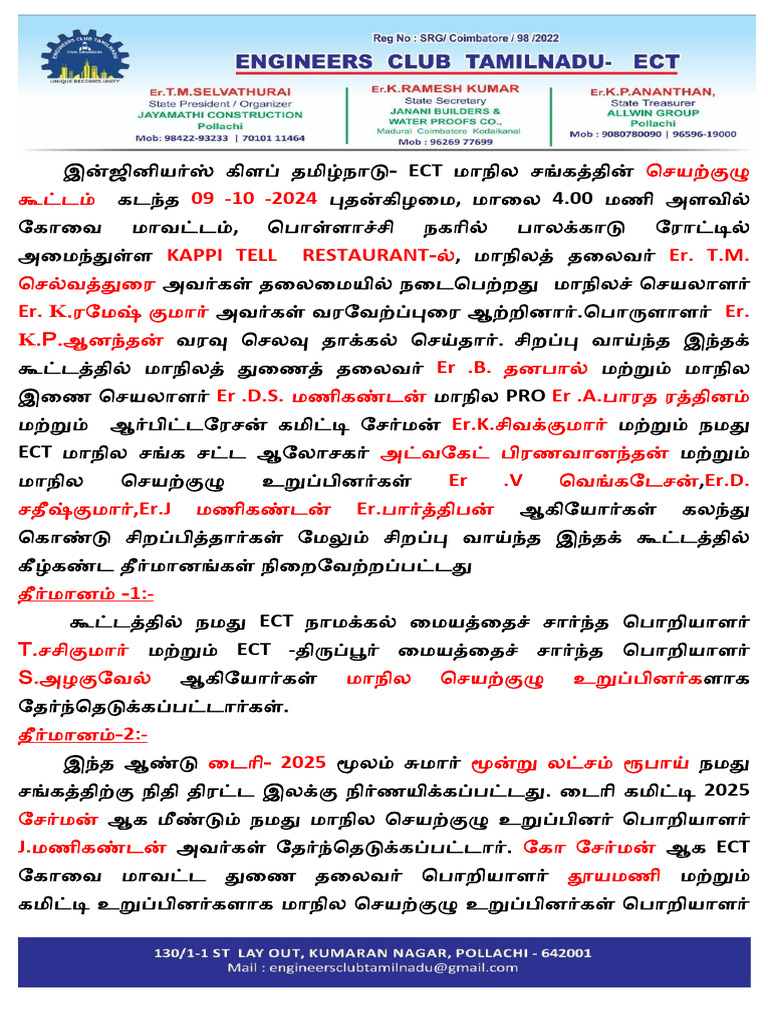 ENGINEERS CLUB TAMILNADU
CIVIL ENGINEERS
UNIQUE BECOMES UNITY
Reg No : SRG/ Coimbatore / 98 /2022
ENGINEERS CLUB TAMILNADU- ECT
Er.T.M.SELVATHURAI
State President / Organizer
JAYAMATHI CONSTRUCTION
Pollachi
Mob: 98422-93233 | 70101 11464
Er.K.RAMESH KUMAR
State Secretary
JANANI BUILDERS &
WATER PROOFS CO.,
Madurai Coimbatore Kodaikanal
Mob : 96269 77699
Er.K.P.ANANTHAN,
State Treasurer
ALLWIN GROUP
Pollachi
Mob : 9080780090 | 96596-19000
இன்ஜினியர்ஸ் கிளப் தமிழ்நாடு- ECT மாநில சங்கத்தின் செயற்குழு
கூட்டம் கடந்த 09 -10 -2024 புதன்கிழமை, மாலை 4.00 மணி அளவில்
கோவை மாவட்டம், பொள்ளாச்சி நகரில் பாலக்காடு ரோட்டில்
அமைந்துள்ள KAPPI TELL RESTAURANT-ல், மாநிலத் தலைவர் Er. T.M.
செல்வத்துரை அவர்கள் தலைமையில் நடைபெற்றது மாநிலச் செயலாளர்
Er. K.ரமேஷ் குமார் அவர்கள் வரவேற்ப்புரை ஆற்றினார்.பொருளாளர் Er.
K.P.ஆனந்தன் வரவு செலவு தாக்கல் செய்தார். சிறப்பு வாய்ந்த இந்தக்
கூட்டத்தில் மாநிலத் துணைத் தலைவர் Er .B. தனபால் மற்றும் மாநில
இணை செயலாளர் Er .D.S. மணிகண்டன் மாநில PRO Er .A.பாரத ரத்தினம்
மற்றும் ஆர்பிட்டரேசன் கமிட்டி சேர்மன் Er.K.சிவக்குமார் மற்றும் நமது
ECT மாநில சங்க சட்ட ஆலோசகர் அட்வகேட் பிரணவானந்தன் மற்றும்
மாநில செயற்குழு உறுப்பினர்கள் Er .V வெங்கடேசன்,Er.D.
சதீஷ்குமார்,Er.J மணிகண்டன் Er.பார்த்திபன் ஆகியோர்கள் கலந்து
கொண்டு சிறப்பித்தார்கள் மேலும் சிறப்பு வாய்ந்த இந்தக் கூட்டத்தில்
கீழ்கண்ட தீர்மானங்கள் நிறைவேற்றப்பட்டது
தீர்மானம் -1:-
கூட்டத்தில் நமது ECT நாமக்கல் மையத்தைச் சார்ந்த பொறியாளர்
T.சசிகுமார் மற்றும் ECT -திருப்பூர் மையத்தைச் சார்ந்த பொறியாளர்
S.அழகுவேல் ஆகியோர்கள் மாநில செயற்குழு உறுப்பினர்களாக
தேர்ந்தெடுக்கப்பட்டார்கள்.
தீர்மானம்-2:-
இந்த ஆண்டு டைரி- 2025 மூலம் சுமார் மூன்று லட்சம் ரூபாய் நமது
சங்கத்திற்கு நிதி திரட்ட இலக்கு நிர்ணயிக்கப்பட்டது. டைரி கமிட்டி 2025
சேர்மன் ஆக மீண்டும் நமது மாநில செயற்குழு உறுப்பினர் பொறியாளர்
J.மணிகண்டன் அவர்கள் தேர்ந்தெடுக்கப்பட்டார். கோ சேர்மன் ஆக ECT
கோவை மாவட்ட துணை தலைவர் பொறியாளர் தூயமணி மற்றும்
கமிட்டி உறுப்பினர்களாக மாநில செயற்குழு உறுப்பினர்கள் பொறியாளர்
130/1-1 ST LAY OUT, KUMARAN NAGAR, POLLACHI - 642001
Mail : engineersclubtamilnadu@gmail.com